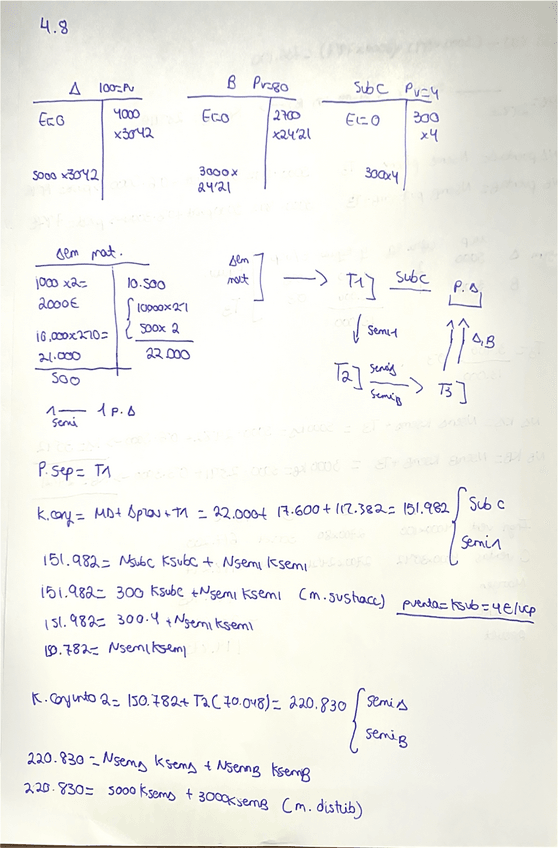 4.8
A 100=Pv
Ei=0
4000
x30'42
5000 x30'42
B Pv=80
Ei=0
2700
x24'21
3000x
24'21
Sub C Pv=4
Ei=0
300
x4
300x4
Alm mat.
1000 x2=
2000€
10.500
10000x2'1
500x 2
22.000
21.000
500
1 — 1 P.A
semi
Alm
mat
T1
SubC
P.A
semi1
T2
semiA
semiB
T3
A,B
P.Sep = T1
K.conj = MD+ Aprov + T1 = 22.000+ 17.600+ 112.382= 151.982
Sub C
semi1
151.982= Nsubc Ksubc + Nsem1 Ksem1
151.982= 300 Ksubc +Nsem1 Ksem1 (m. sustracc) pventa=Ksub=4€/ucp
151.982= 300.4 +Nsem1 Ksem1
150.782= Nsem1Ksem1
K.conjunto 2= 150.782+ T2(70.048)= 220.830
semi A
semi B
220.830 = NsemA KsemA + NsemB KsemB
220.830= 5000 KsemA + 3000KsemB (m. distrib)